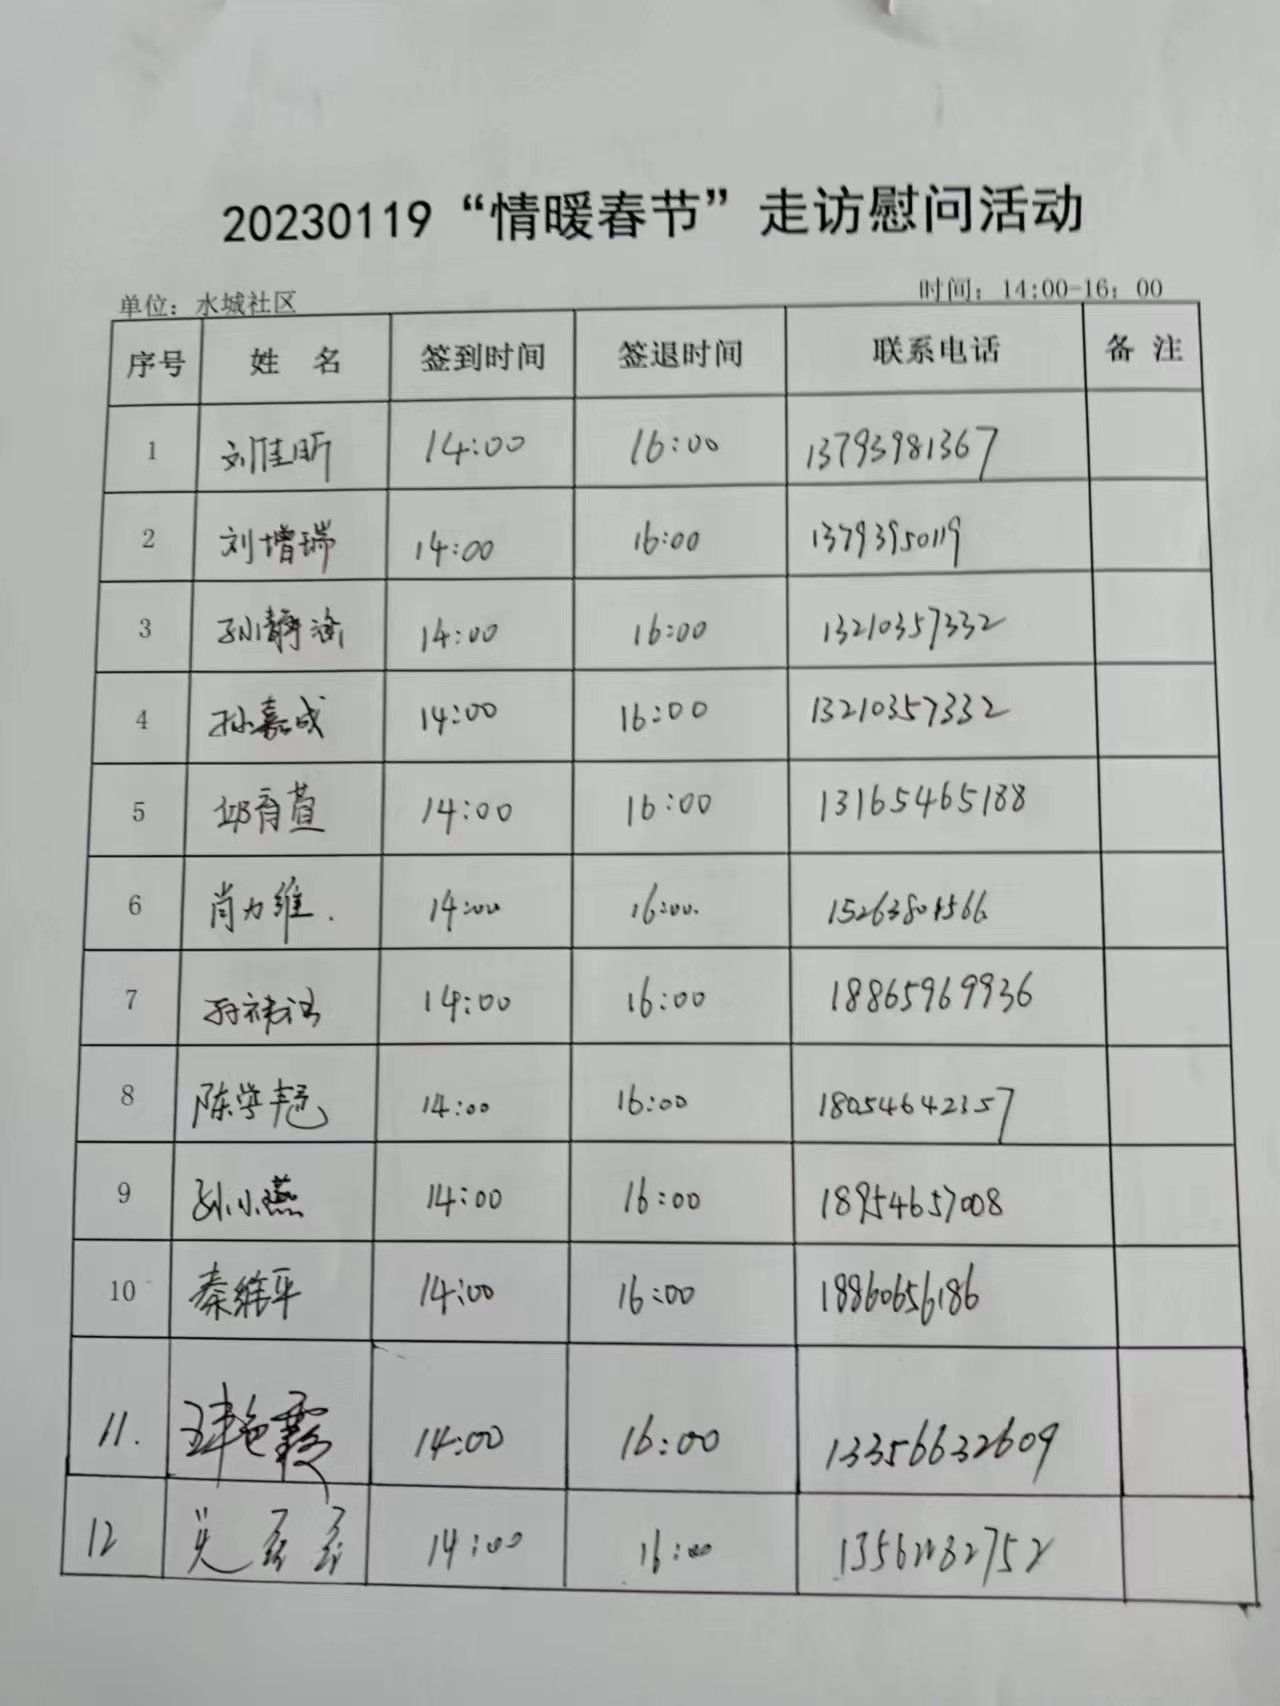 20230119“情暖春节”走访慰问活动
单位：水城社区 时间：14:00-16：00
序号 姓 名 签到时间 签退时间 联系电话 备 注
1 刘佳昕 14:00 16:00 13793981367
2 刘增瑞 14:00 16:00 13793950119
3 孙静涵 14:00 16:00 13210357332
4 孙嘉成 14:00 16:00 13210357332
5 邱育萱 14:00 16:00 13165465188
6 肖力维. 14:00 16:00.
7 14:00 16:00 18865969936
8 陈学艳 14:00 16:00 18054642357
9 孙小燕 14:00 16:00 18954657008
10 秦维平 14:00 16:00 18860656186
11. 14:00 16:00 13356632609
12 14:00 16:00